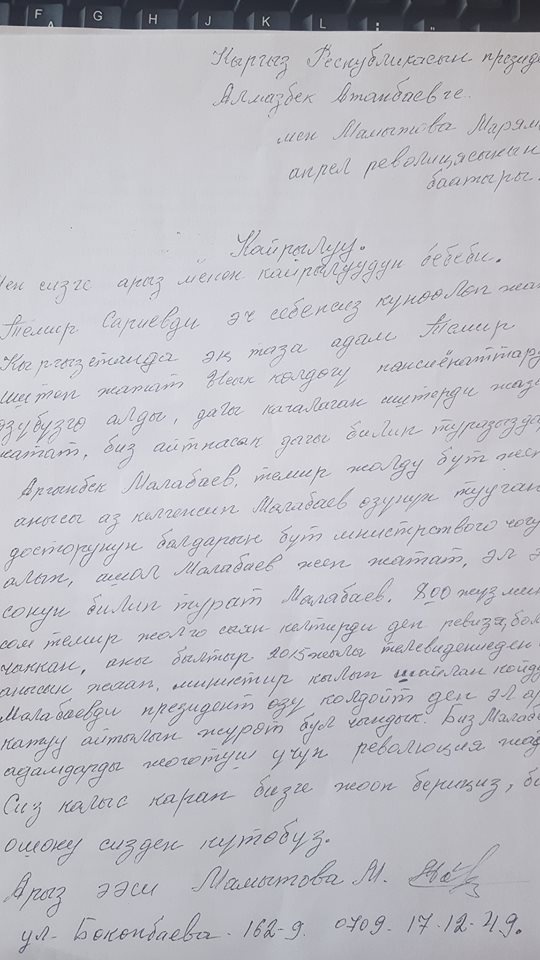 Кыргыз Республикасын презид
Алмазбек Атанбаевге.
мен Мамытова Марям
апрел революциясынын
баатыры.
Кайрылуу.
Мен сизге арыз менен кайрылуудун себеби.
Темир Сариевди эч себепсиз күнөөлөп жа
Кыргызстанда эң таза адам Темир
иштеп жатат Ысык көлдөгү пансиёнаттард
өзүбүзгө алды, дагы качалаган иштерди жаз
жатат, биз айтпасак дагы билип турасыздар
Аргынбек Малабаев, темир жолду бүт жеп
анысы аз келгенсип Малабаев өзүнүн тууган
досторунун балдарын бүт министрвого чогу
алып, ошол Малабаев жеп жатат, эл э
сонун билип турат Малабаев. 800 жүз мин
сом темир жолго зыян келтирди деп ревизия бол
чыккан, аны былтыр 2015 жылы телевидениеден
анысын жаап, министир кылып шайлап койду
Малабаевди президент өзү колдойт деп эл ар
катуу айтылып жүрөт бул чындык. Биз Малаба
адамдарды жоготуш үчүн революция жа
Сиз калыс карап бизге жооп бериңиз, би
ошону сизден күтөбүз.
Арыз ээси Мамытова М.
ул- Боконбаева - 162-9. 0709. 17.12-49.